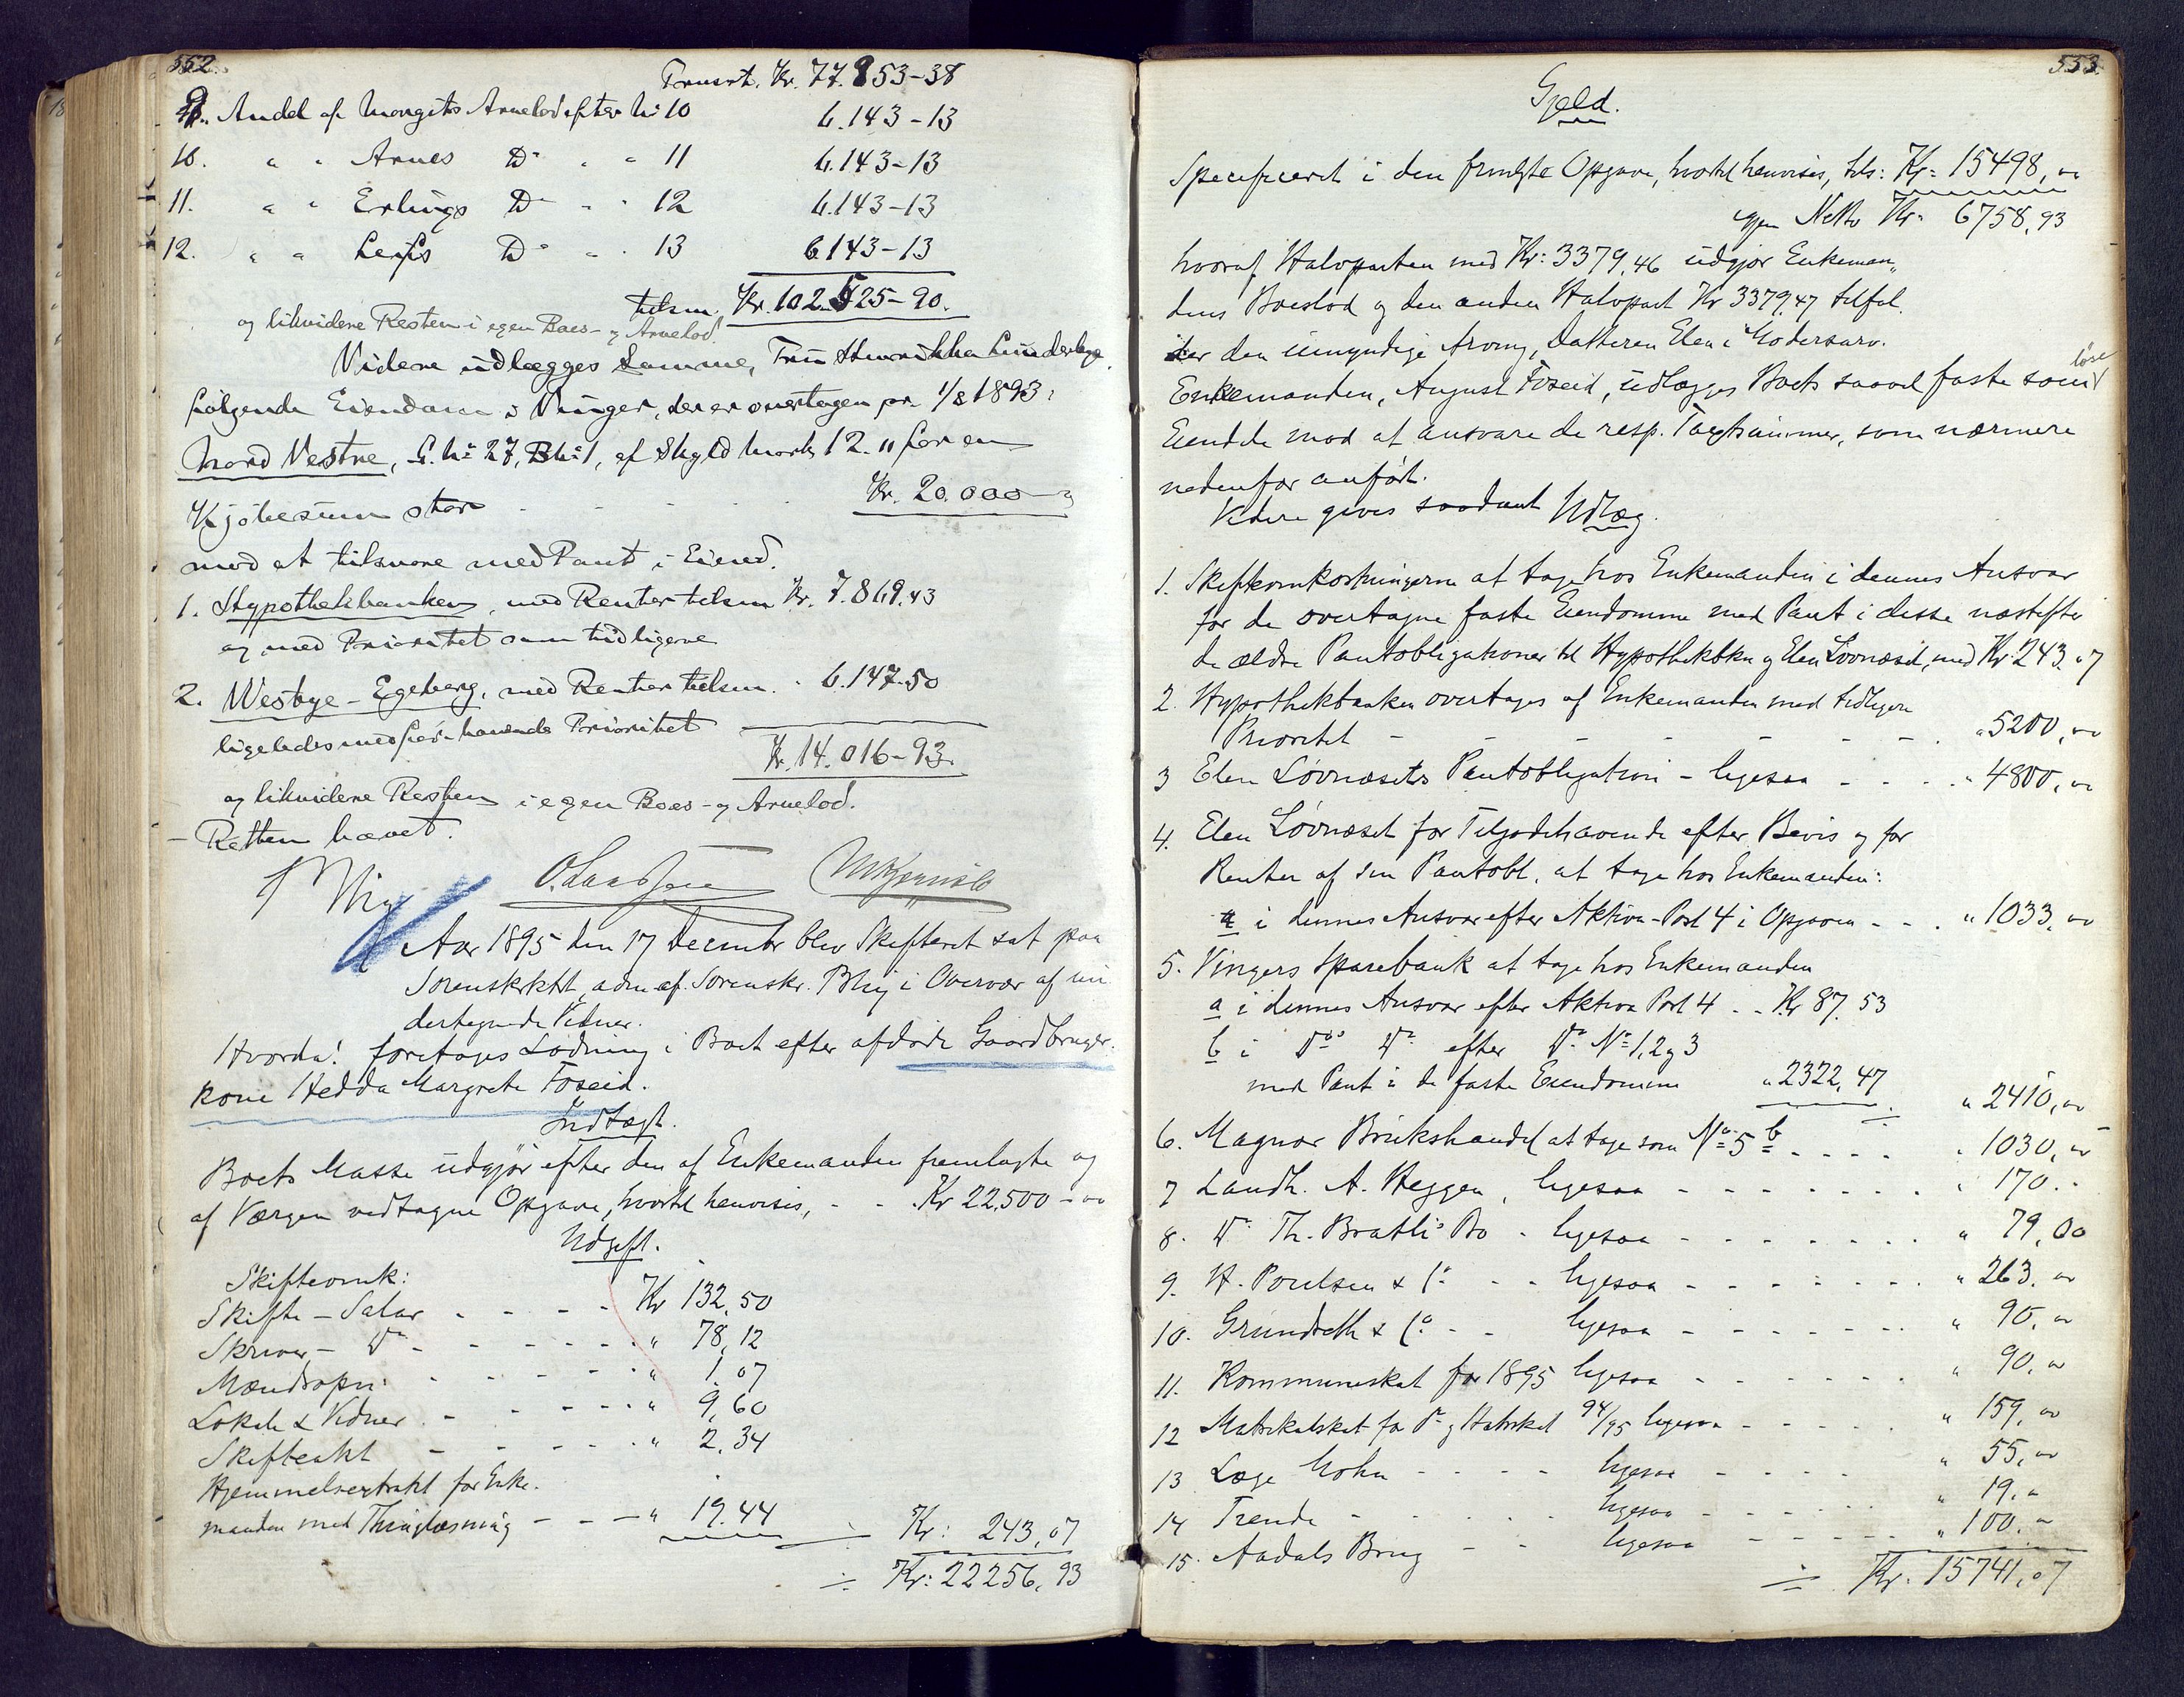 552.
Transrt. Kr. 77.853-38
9. Andel af Margits Arvelod efter No 10 6.143-13
10. " " Arnes Do " " 11 6.143-13
11. " " Erlings Do " " 12 6.143-13
12. " " Leifs Do " " 13 6.143-13
tilsm. Kr. 102.425-90.
og likvidere Resten i egen Boes- og Arvelod.
Videre udlægges Samme, Fru
følgende Eiendom i Vinger, der er overtagen pr. 1/8 1893:
Nord Vestre, G. No 27, B.No 1, af Skyld Mark 12. " for en
Kjøbesum stor - - - Kr. 20.000 "
mod at tilsvare med Pant i Eiend.
1. Hypothekbanken, med Renter tilsm Kr. 7.869.43
og med Prioritet som tidligere
2. Westye-Egeberg, med Renter tilsm. " 6.147-50
ligeledes med før havende Prioritet
Kr. 14.016-93.
og likvidere Resten i egen Boes- og Arvelod.
- Retten hævet.
Aar 1895 den 17 December blev Skifteret sat paa
Sorenskrktrt, adm. af Sorenskr. Blig i Overvær af un-
dertegnede Vidner.
Hvorda! foretages Lodning i Boet efter afdøde Gaardbruger-
kone Hedda Margrete Foseid.
Indtægt.
Boets Masse udgjør efter den af Enkemanden fremlagte og
af Værgen vedtagne Opgave, hvortil henvises, - - . Kr 22,500 - "
Udgift.
Skifteomk:
Skifte-Salar - - - - Kr 132,50
Skriver- Do - - - - - " 78,12
Mændsopn: - - - - " 1,07
Lokale & Vidner. - - - - " 9,60
Skifteakt - - - - " 2,34
Hjemmelsextrakt for Enke-
manden med Thinglæsning - - - " 19.44 ÷ Kr: 243,07
÷ Kr: 22256,93
553.
Gjeld.
Specificeret i den fremlagte Opgave, hvortil henvises, tils: Kr: 15498, "
igjen Netto Kr. 6758,93
hvoraf Halvparten med Kr: 3379,46 udgjør Enkeman-
dens Boeslod og den anden Halvpart Kr 3379,47 tilfal-
der den umyndige Arving, Datteren Elen i Modersarv.
Enkemanden, August Foseid, udlægges Boets saavel faste som løse
Eiendele mod at ansvare de resp. Taxtsummer, som nærmere
nedenfor anført.
Videre gives saadant Udlæg.
1. Skifteomkostningerne at tage hos Enkemanden i dennes Ansvar
for de overtagne faste Eiendomme med Pant i disse næstefter
de ældre Pantobligationer til Hypothekbkn og Elen Lövnæset, med Kr. 243.07
2. Hypothekbanken overtages af Enkemanden med tidligere
Prioritet - - - - - - - . " 5200, "
3 Elen Lövnæsets Pantobligation - ligesaa - - - . " 4800, "
4. Elen Lövnæset for Tilgodehavende efter Bevis og for
Renter af sin Pantobl. at tage hos Enkemanden:
a i dennes Ansvar efter Aktiva-Post 4 i Opgaven - - . " 1033, "
5. Vingers Sparebank at tage hos Enkemanden
a i dennes Ansvar efter Aktiva Post 4 . . Kr 87,53
b i Dos Do efter Do No 1, 2 og 3
med Pant i de faste Eiendomme " 2322,47 " 2410, "
6. Magnor Brukshandel at tage som No 5 b . - - - " 1030, "
7 Landh. A. Heggen, ligesaa - - - - - - " 170. -
8. Do Th. Bratlis Bo - ligesaa - - - - - - " 79,00
9. H. Poulsen & Co - - ligesaa - - - - - - " 263. "
10. Grundseth & Co - - ligesaa - - - - - - " 90, "
11. Kommuneskat for 1895 ligesaa - - - - - - " 90, "
12 Matrikulskat for Do og 94/95 ligesaa - - - - - " 159, "
13 Læge Mohn - - - - ligesaa - - - - " 55, "
14 Trende - - - - - ligesaa - - - - - " 19, "
15. Aadals Brug - - ligesaa - - - - - " 100. "
÷ Kr. 15741,07